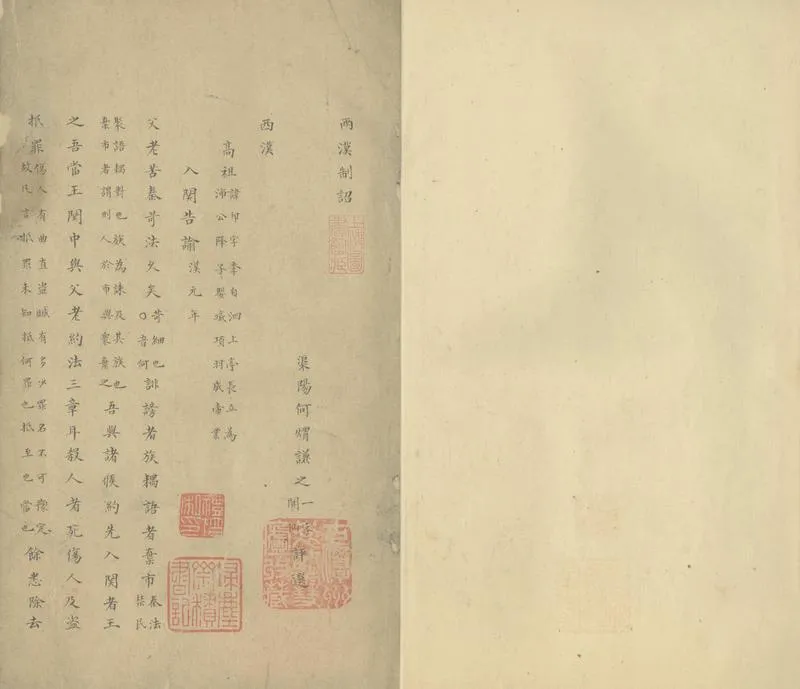 兩漢制詔
渠陽何謙之
評選
西漢
高祖
諱邦字季自泗上亭長立為
沛公降子嬰滅項羽成帝業
入関告諭漢元年
父老苦秦苛法久矣
苛細也
○音何
誹謗者族耦語者棄市
秦法
禁民
聚語耦對也族為誅及其族也
棄市者謂刑人於市與眾棄之
吾與諸侯約先入関者王
之吾當王関中與父老約法三章耳殺人者死傷人及盜
抵罪
傷人有曲直盜贓有多少罪名不可豫定
故凡言抵罪未知抵何罪也抵至也當也
餘悉除去